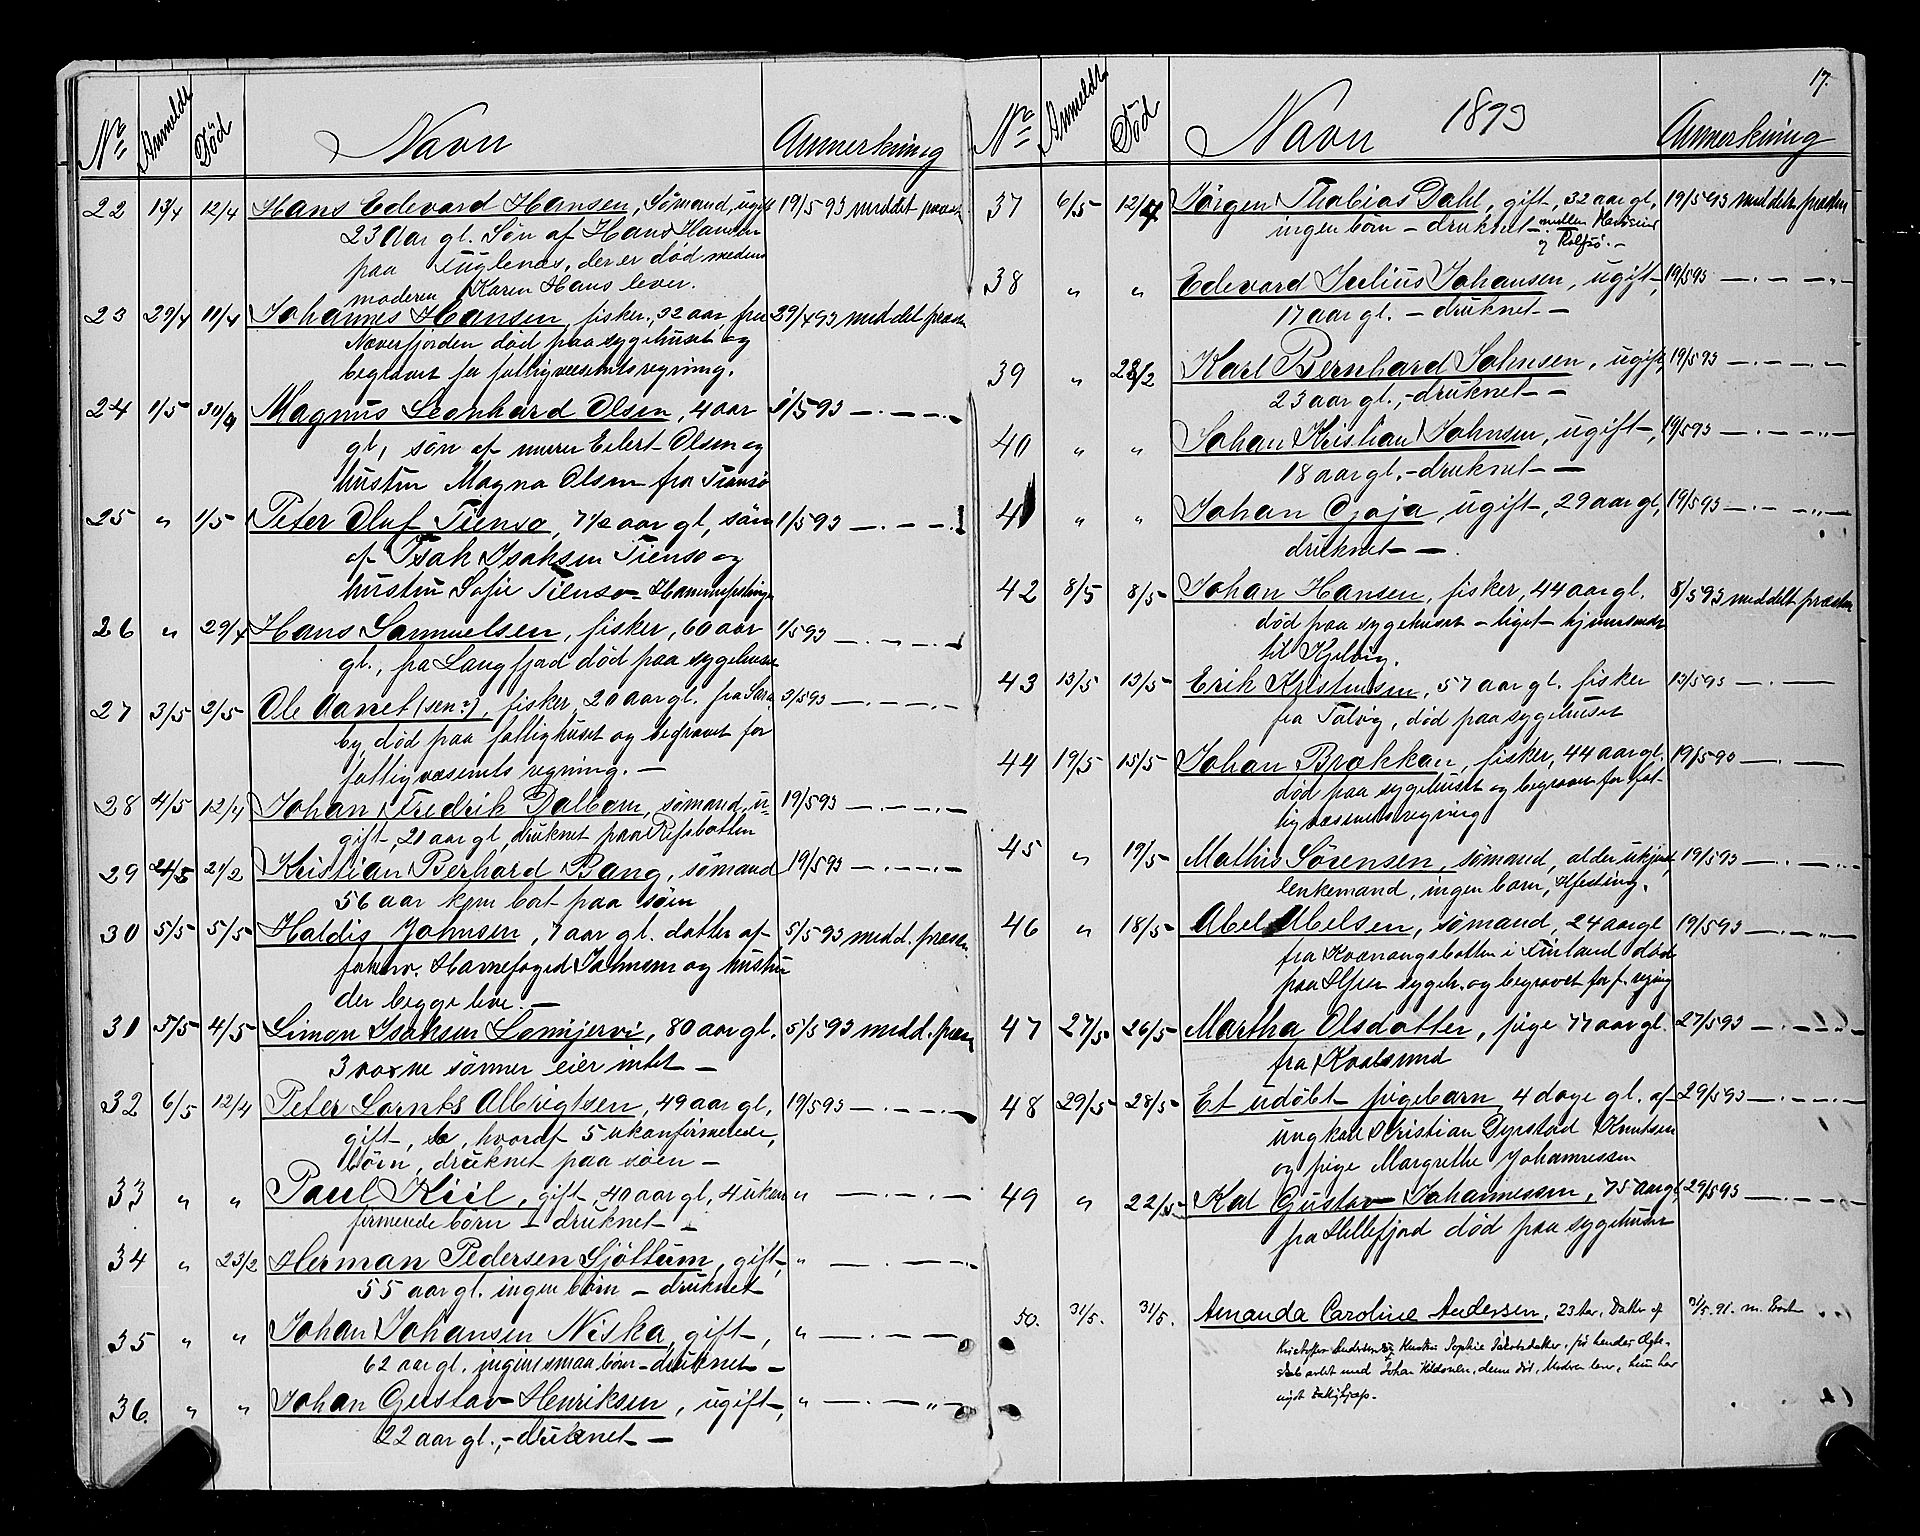 No Anmeldt Död Navn Anmerkning
22 13/4 12/4 Hans Edevard Hansen, Sömand, ugift 19/5 93 meddelt
23 Aar gl. Søn af Hans Hansen
paa Fuglenæs, der er død medens
moderen Karen Hans lever.
23 29/4 11/4 Johannes Hansen, fisker, 32 aar, fra 29/4 93 meddelt præsten
Næverfjorden död paa sygehuset og
begravet for fattigvæsenets regning.
24 1/5 30/4 Magnus Leonhard Olsen, 4 aar 1/5 93 — . — — . —
gl, sön af murer Edert Olsen og
hustru Magna Olsen fra Tromsö
25 " 1/5 Peter Oluf Tienso, 7 1/2 aar gl, sön 1/5 93 — . — — .
af Isak Isaksen Tienso og
hustru Sofie Tienso - Hammerfesting
26 " 29/4 Hans Samuelsen, fisker, 60 aar 1/5 93 — . — — . —
gl., fra Langfjord död paa sygehuset
27 3/5 2/5 Ole Aanet (sen?), fisker 20 aar gl. fra 3/5 93 — . — — . —
by, död paa fattighuset og begravet for
fattigvæsenets regning. —
28 4/5 12/4 Johan Fredrik Dalbom, sömand, u- 19/5 93 — . — — . —
gift, 20 aar gl, druknet paa Refsbotten
29 24/5 21/2 Kristian Berhard Bang, sömand 19/5 93 — . — — . —
56 aar kom bort paa söen
30 5/5 5/5 Haldis Johnsen, 7 aar gl. datter af 5/5 93 medd. præsten
forhv. Havnefoged Johnsen og hustru
der begge leve. —
31 5/5 4/5 Simon Isaksen Lomijervi, 80 aar gl. 5/5 93 medd. præsten
3 voxne sönner eier intet —
32 6/5 12/4 Peter Lornts Albrigtsen, 49 aar gl, 19/5 93 — . — — . —
gift, hvoraf 5 ukonfirmerede,
börn, druknet paa söen —
33 " " Paul Kiil, gift, 40 aar gl, 4 ukon " — . — . —
firmerede börn — druknet —
34 " 23/2 Herman Pedersen Sjöttum, gift, " — . — — .
55 aar gl. ingen börn — druknet
35 " " Johan Johansen Niska, gift, " — . — . — —
62 aar gl. ingen smaa börn - druknet —
36. " " Johan Gustav Henriksen, ugift, " — . — — " —
22 aar gl., - druknet —
17.
No Anmeldt Död Navn 1893 Anmerkning
37 6/5 12/4 Jörgen Thobias Dahl, gift, 32 aar gl, 19/5 93 meddelt præsten
ingen börn — druknet mellem
og Rolfsö. —
38 " " Edevard Julius Johansen, ugift, 19/5 93 — . — — " —
17 aar gl. — druknet —
39 " 28/2 Karl Bernhard Johnsen, ugift, 19/5 93 — . — — . —
23 aar gl., - druknet — —
40 " " Johan Kristian Johnsen, ugift, 19/5 93 — . — — " —
18 aar gl. - druknet — —
41 " " Johan Ojoja, ugift, 29 aar gl, 19/5 93 — . — — " —
druknet — — .
42 8/5 8/5 Johan Hansen, fisker, 44 aar gl. 8/5 93 meddelt præsten
död paa sygehuset — liget hjemsendt
til Kjelvig.
43 13/5 13/5 Erik Kristensen, 57 aar gl. fisker 13/5 93 — . —
fra Talvig, död paa sygehuset
44 19/5 15/5 Johan Brækkan, fisker, 44 aar gl. 19/5 93 — . —
död paa sygehuset og begravet for fat-
tigvæsenets regning
45 " 19/5 Mathis Sörensen, sömand, alder ukjendt, 19/5 93 — . — — . —
enkemand, ingen börn, Hfesting.
46 " 18/5 Abel Abelsen, sömand, 24 aar gl 19/5 93 — . — " —
fra Kvænangsbotten i Finland död
paa sygeh. og begravet for f. regning
47 27/5 26/5 Martha Olsdatter, pige 77 aar gl. 27/5 93 — . — — . —
fra Kvalsund
48 29/5 28/5 Et udöbt pigebarn 4 dage gl. af 29/5 93 — . — — . —
ungkarl Kristian Dyrstad Knutsen
og pige Margrethe Johannessen
49 " 22/5 Karl Gustav Johannessen, 75 aar gl, 29/5 93 — . — — .
fra Hellefjord död paa sygehuset
50. 31/5. 31/5. Amanda Caroline Andersen, 23 Aar, Datter af 31/5. 91. m.
Kristofer Andersen og Hustru Sophie Jakobsdatter, før hendes Ægte-
skab avlet med Johan denne död, Modren lever, hun har
nydt Fattighjælp.